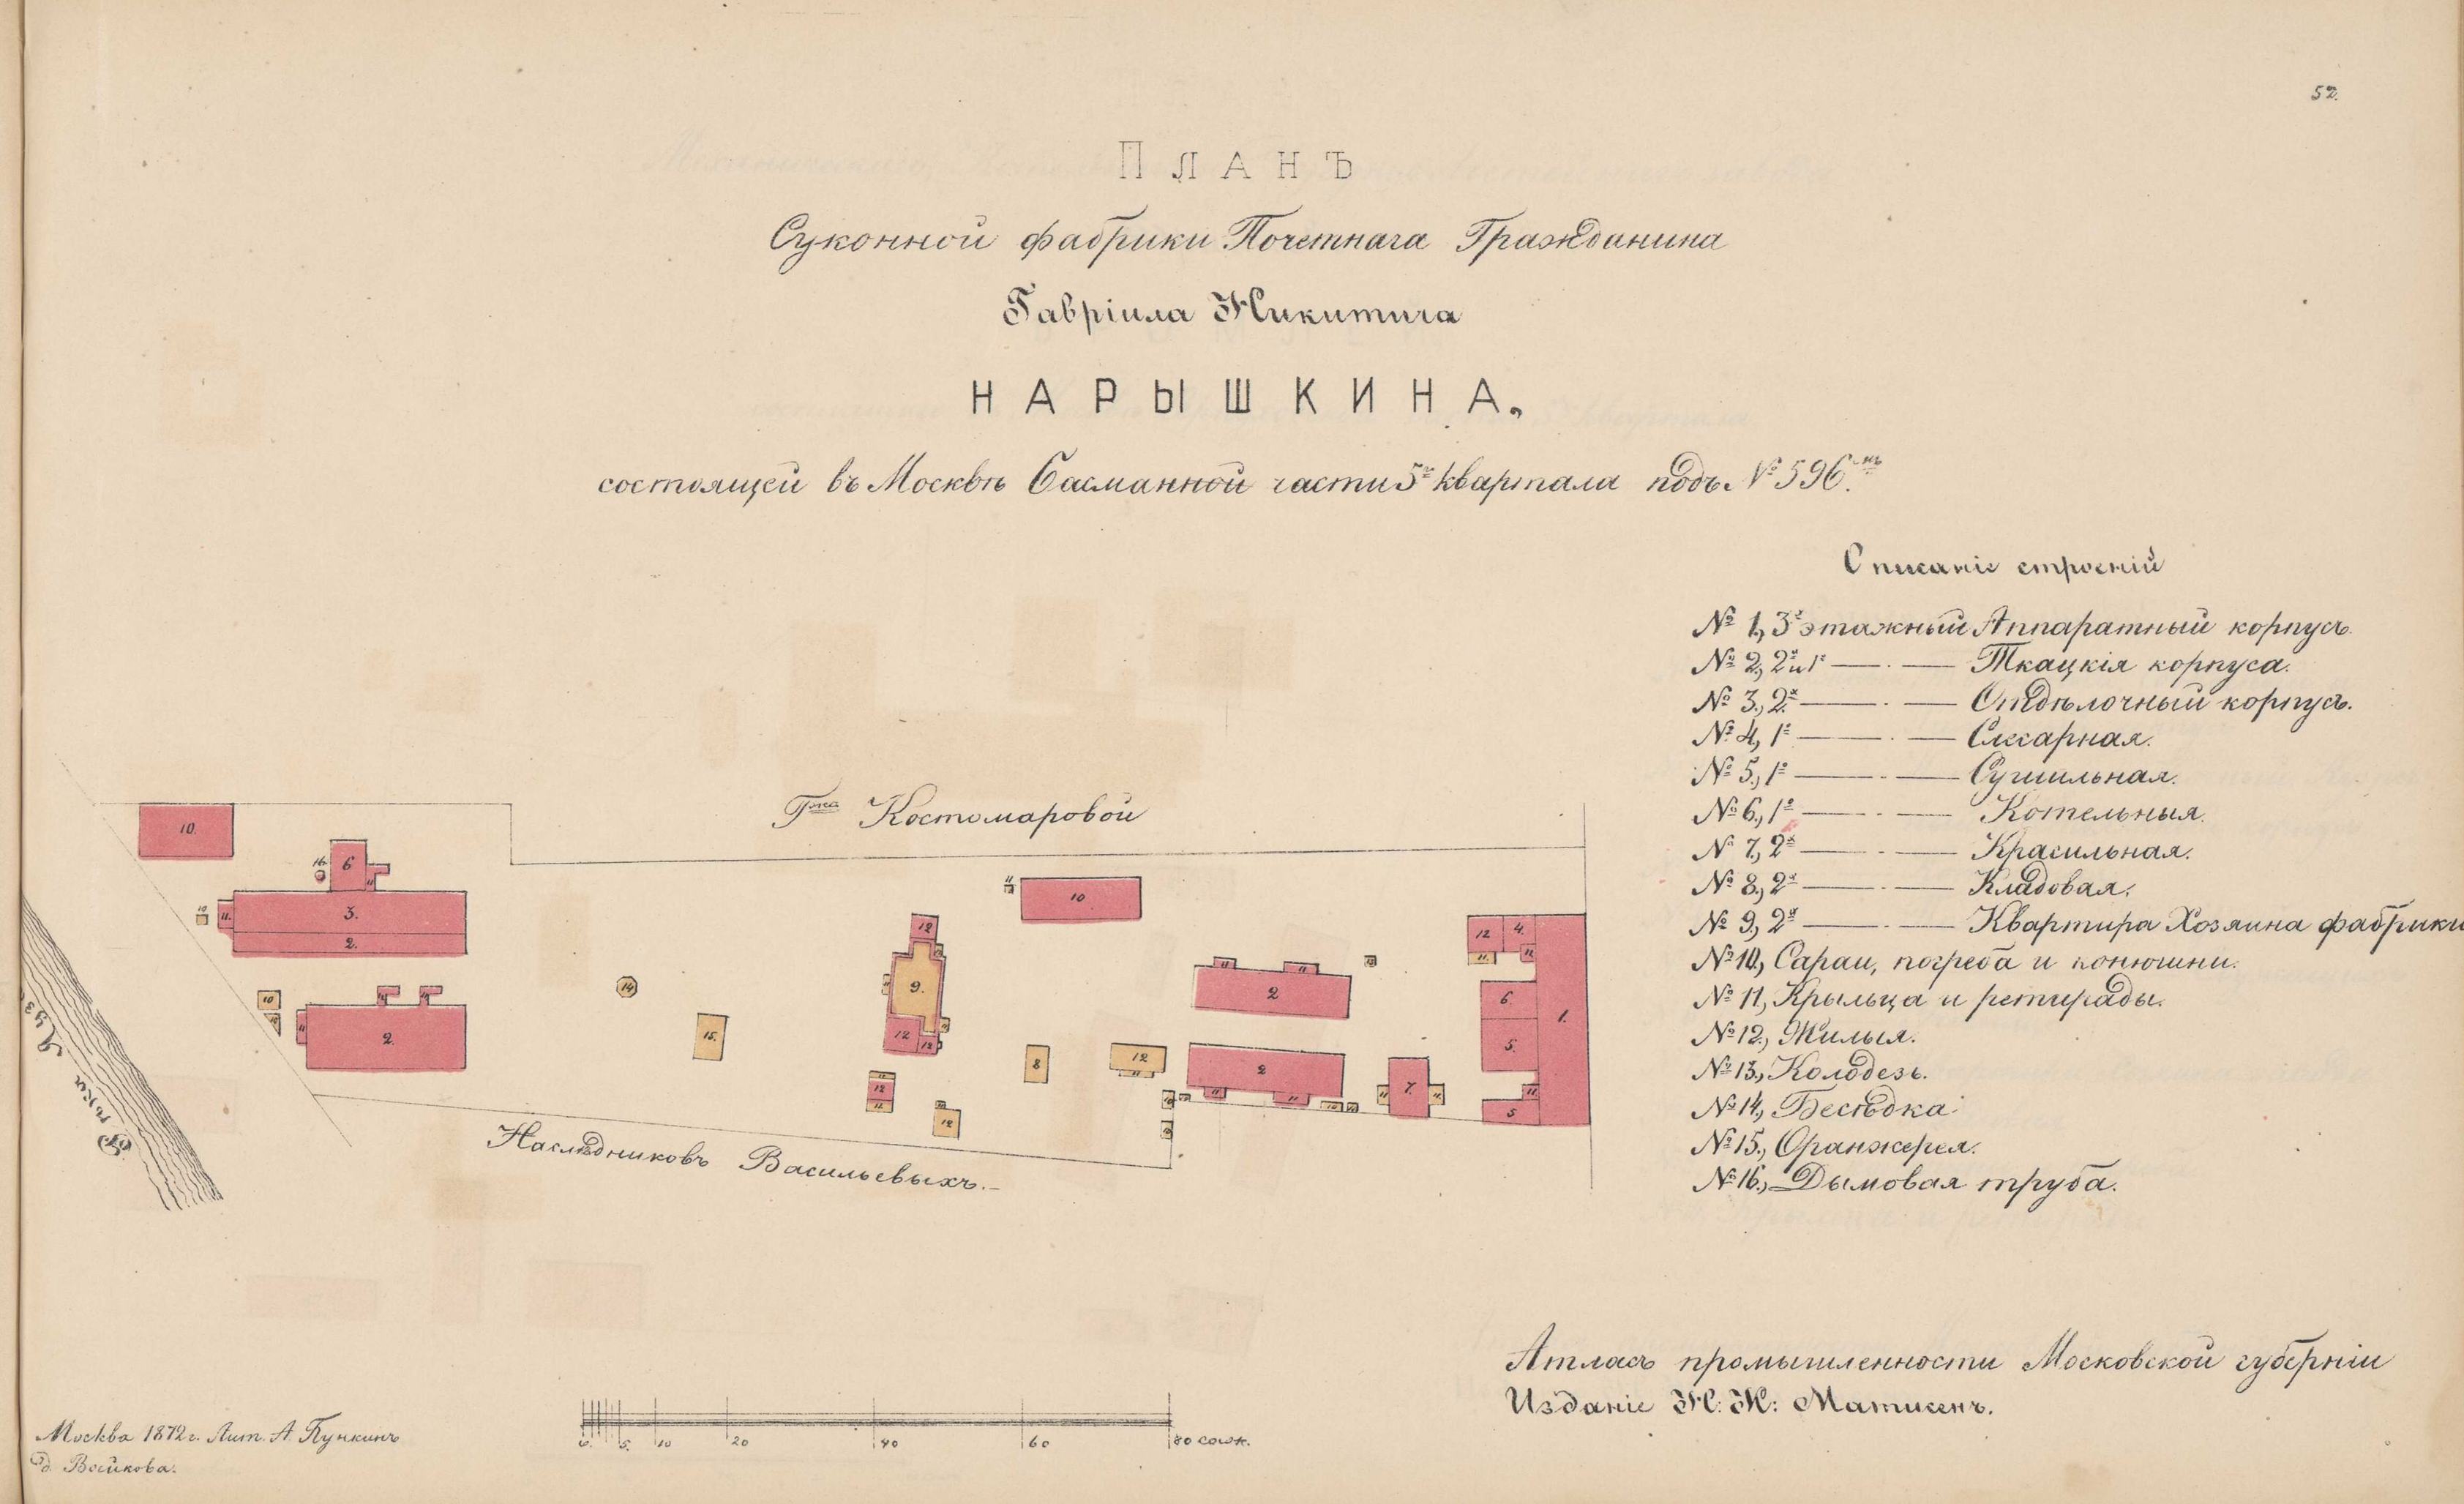 52.
ПЛАНЪ
Суконной фабрики Почетнага Гражданина
Гавріила Никитича
НАРЫШКИНА,
состоящей въ Москвѣ Басманной части 5го квартала подъ № 596мъ.
Описаніе строеній
№ 1, 3х этажный Аппаратный корпусъ.
№ 2, 2х и 1о —·— Ткацкія корпуса.
№ 3, 2х —·— Отдѣлочный корпусъ.
№ 4, 1о —·— Слесарная.
№ 5, 1о —·— Сушильная.
№ 6, 1о —·— Котельныя.
№ 7, 2х —·— Красильная.
№ 8, 2х —·— Кладовая.
№ 9, 2х —·— Квартира Хозяина фабрики
№ 10, Сараи, погреба и конюшни.
№ 11, Крыльца и ретирады.
№ 12, Жилыя.
№ 13, Колодезь.
№ 14, Бесѣдка.
№ 15, Оранжерея.
№ 16, Дымовая труба.
Гжа Костомаровой
10.
16.
6
11
10
11.
3.
2.
10
11
2.
14
15.
11
10
12
9.
12
12
12
11
12
8
12
11
11
2
2
11
11
7.
11
12
4.
11
6.
5.
11
5
1.
Рѣка Яуза
Наслѣдниковъ Васильевыхъ.
0. 5. 10 20 40 60 80 саж.
Атласъ промышленности Московской губерніи
Изданіе Н. К. Матисенъ.
Москва 1872 г. Лит. А. Пункинъ
д. Воейкова.